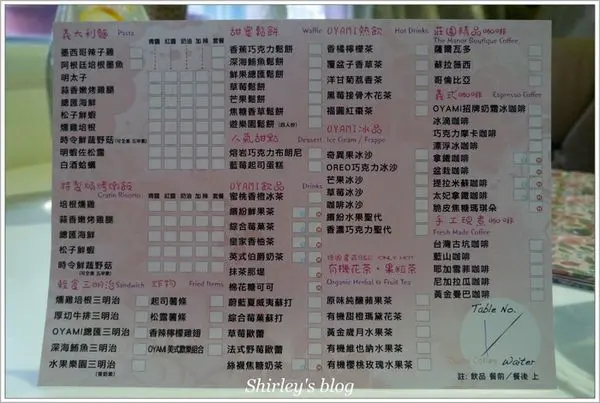 義大利麵 Pasta
青醬 紅醬 奶油 加辣 套餐
墨西哥辣子雞
阿根廷培根墨魚
明太子
蒜香嫩烤雞腿
總匯海鮮
松子鮮蝦
燻雞培根
時令鮮蔬野菇(可全素 五辛素)
明蝦佐松露
白酒蛤蠣
特製焗烤燉飯
Gratin Risotto
青醬 紅醬 奶油 加辣 套餐
培根燻雞
蒜香嫩烤雞腿
總匯海鮮
松子鮮蝦
時令鮮蔬野菇
(可全素 五辛素)
輕食三明治 Sandwich
燻雞培根三明治
厚切牛排三明治
OYAMI總匯三明治
深海鮪魚三明治
水果樂園三明治
(蛋奶素)
炸物 Fried Items
起司薯條
黃金薯條
香辣檸檬雞翅
OYAMI 美式歡樂組合
甜蜜鬆餅 Waffle
香蕉巧克力鬆餅
深海鮪魚鬆餅
鮮果總匯鬆餅
草莓鬆餅
芒果鬆餅
焦糖香草鬆餅
遊樂園鬆餅(四人份)
人氣甜點 Dessert
熔岩巧克力布朗尼
藍莓起司蛋糕
OYAMI飲品 Drinks
蜜桃香橙冰茶
繽紛鮮果茶
綜合莓果茶
皇家香柚茶
英式伯爵奶茶
抹茶那堤
棉花糖可可
蔚藍夏威夷蘇打
綜合莓菓蘇打
草莓歐蕾
法式野莓歐蕾
絲襪焦糖奶茶
OYAMI熱飲 Hot Drinks
香橘檸檬茶
覆盆子香草茶
洋甘菊荔香茶
黑莓接骨木花茶
福圓紅棗茶
OYAMI冰品
Ice Cream / Frappe
奇異果冰沙
OREO巧克力冰沙
芒果冰沙
草莓冰沙
咖啡冰沙
繽紛水果聖代
香濃巧克力聖代
有機花茶、果粒茶
Organic Herbal & Fruit Tea
原味純釀蘋果茶
有機甜橙瑪黛花茶
黃金歲月水果茶
有機維也納水果茶
有機櫻桃玫瑰水果茶
莊園精品咖啡
The Manor Boutique Coffee
薩爾瓦多
蘇拉薇西
哥倫比亞
義式咖啡 Espresso Coffee
OYAMI招牌奶霜冰咖啡
冰滴咖啡
巧克力摩卡咖啡
漂浮冰咖啡
拿鐵咖啡
盆栽咖啡
提拉米蘇咖啡
太妃拿鐵咖啡
脆皮焦糖瑪琪朵
手工現煮咖啡
Fresh Made Coffee
台灣古坑咖啡
藍山咖啡
耶加雪菲咖啡
尼加拉瓜咖啡
黃金曼巴咖啡
Table No.
Waiter
註: 飲品 餐前/餐後 上
Shirley's blog